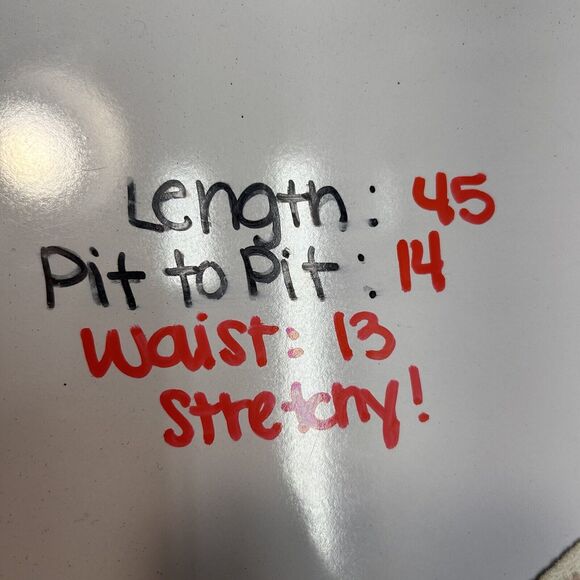 Length: 45
Pit to Pit: 14
Waist: 13
Stretchy!